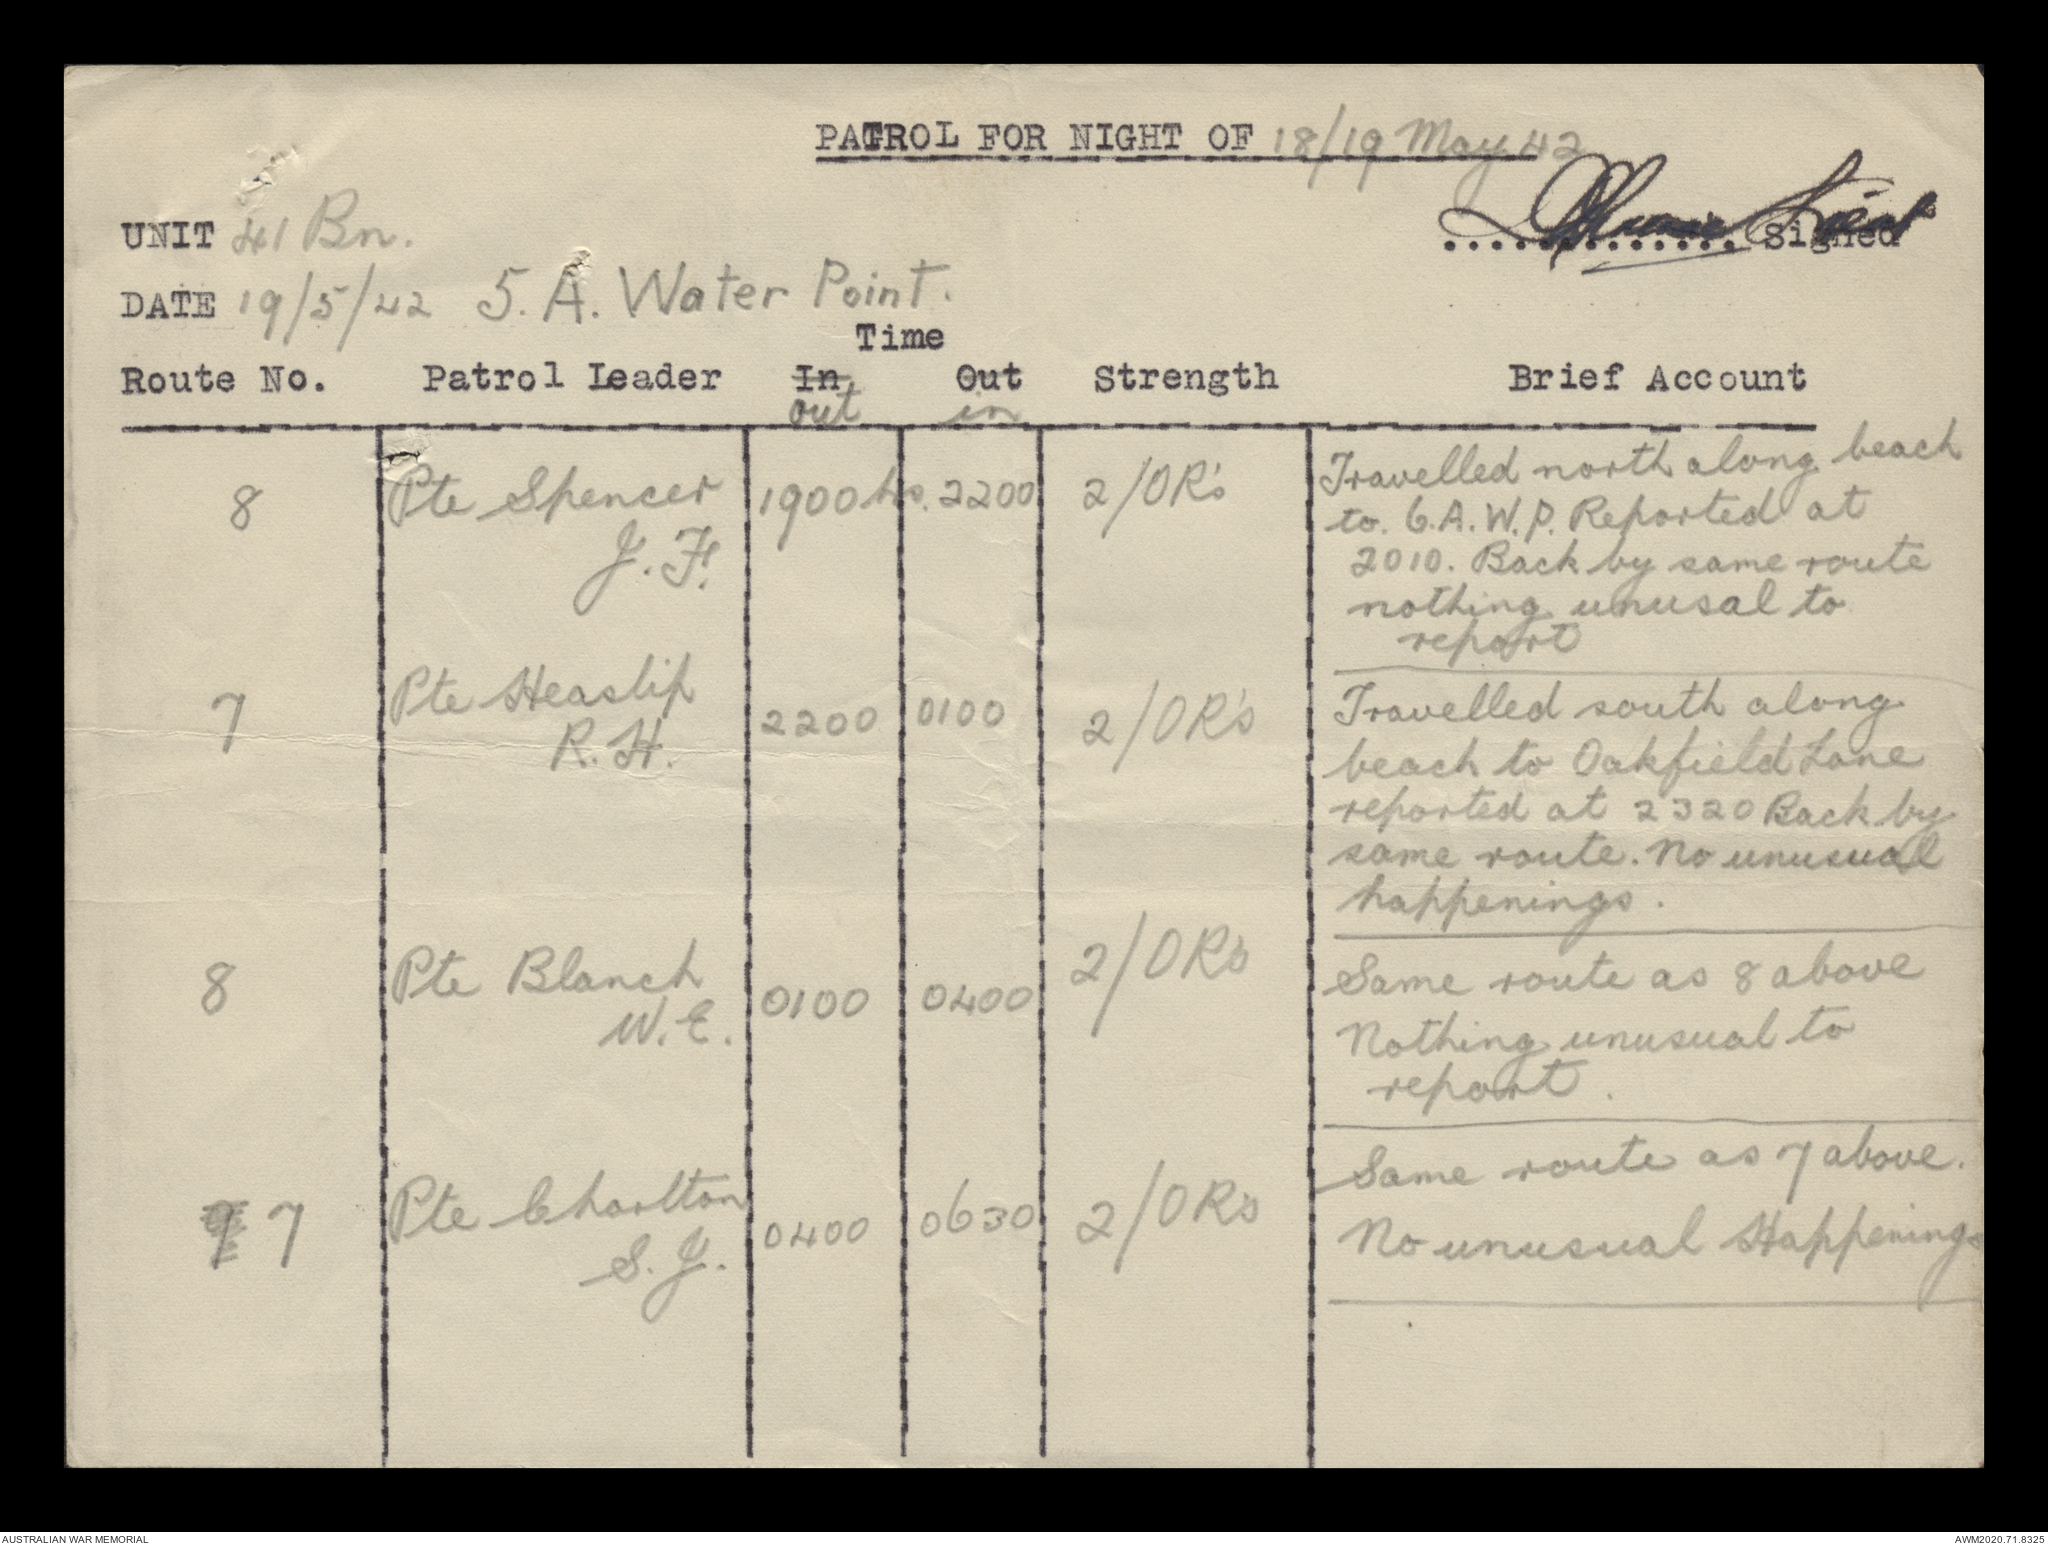 PATROL FOR NIGHT OF 18/19 May 42
UNIT 41 Bn.
Lieut
............. Signed
DATE 19/5/42 5. A. Water Point.
Time
Route No. Patrol Leader In Out Strength Brief Account
out in
8 Pte Spencer J. F. 1900 hs. 2200 2/OR's Travelled north along beach
to. 6.A.W.P. Reported at
2010. Back by same route
nothing unusal to
report
7 Pte Heaslip R. H. 2200 0100 2/OR's Travelled south along
beach to Oakfield Lane
reported at 2320 Back by
same route. No unusual
happenings.
8 Pte Blanch W. E. 0100 0400 2/OR's Same route as 8 above
Nothing unusual to
report.
7 Pte Charlton S. J. 0400 0630 2/OR's Same route as 7 above.
No unusual Happenings
AUSTRALIAN WAR MEMORIAL AWM2020.71.8325